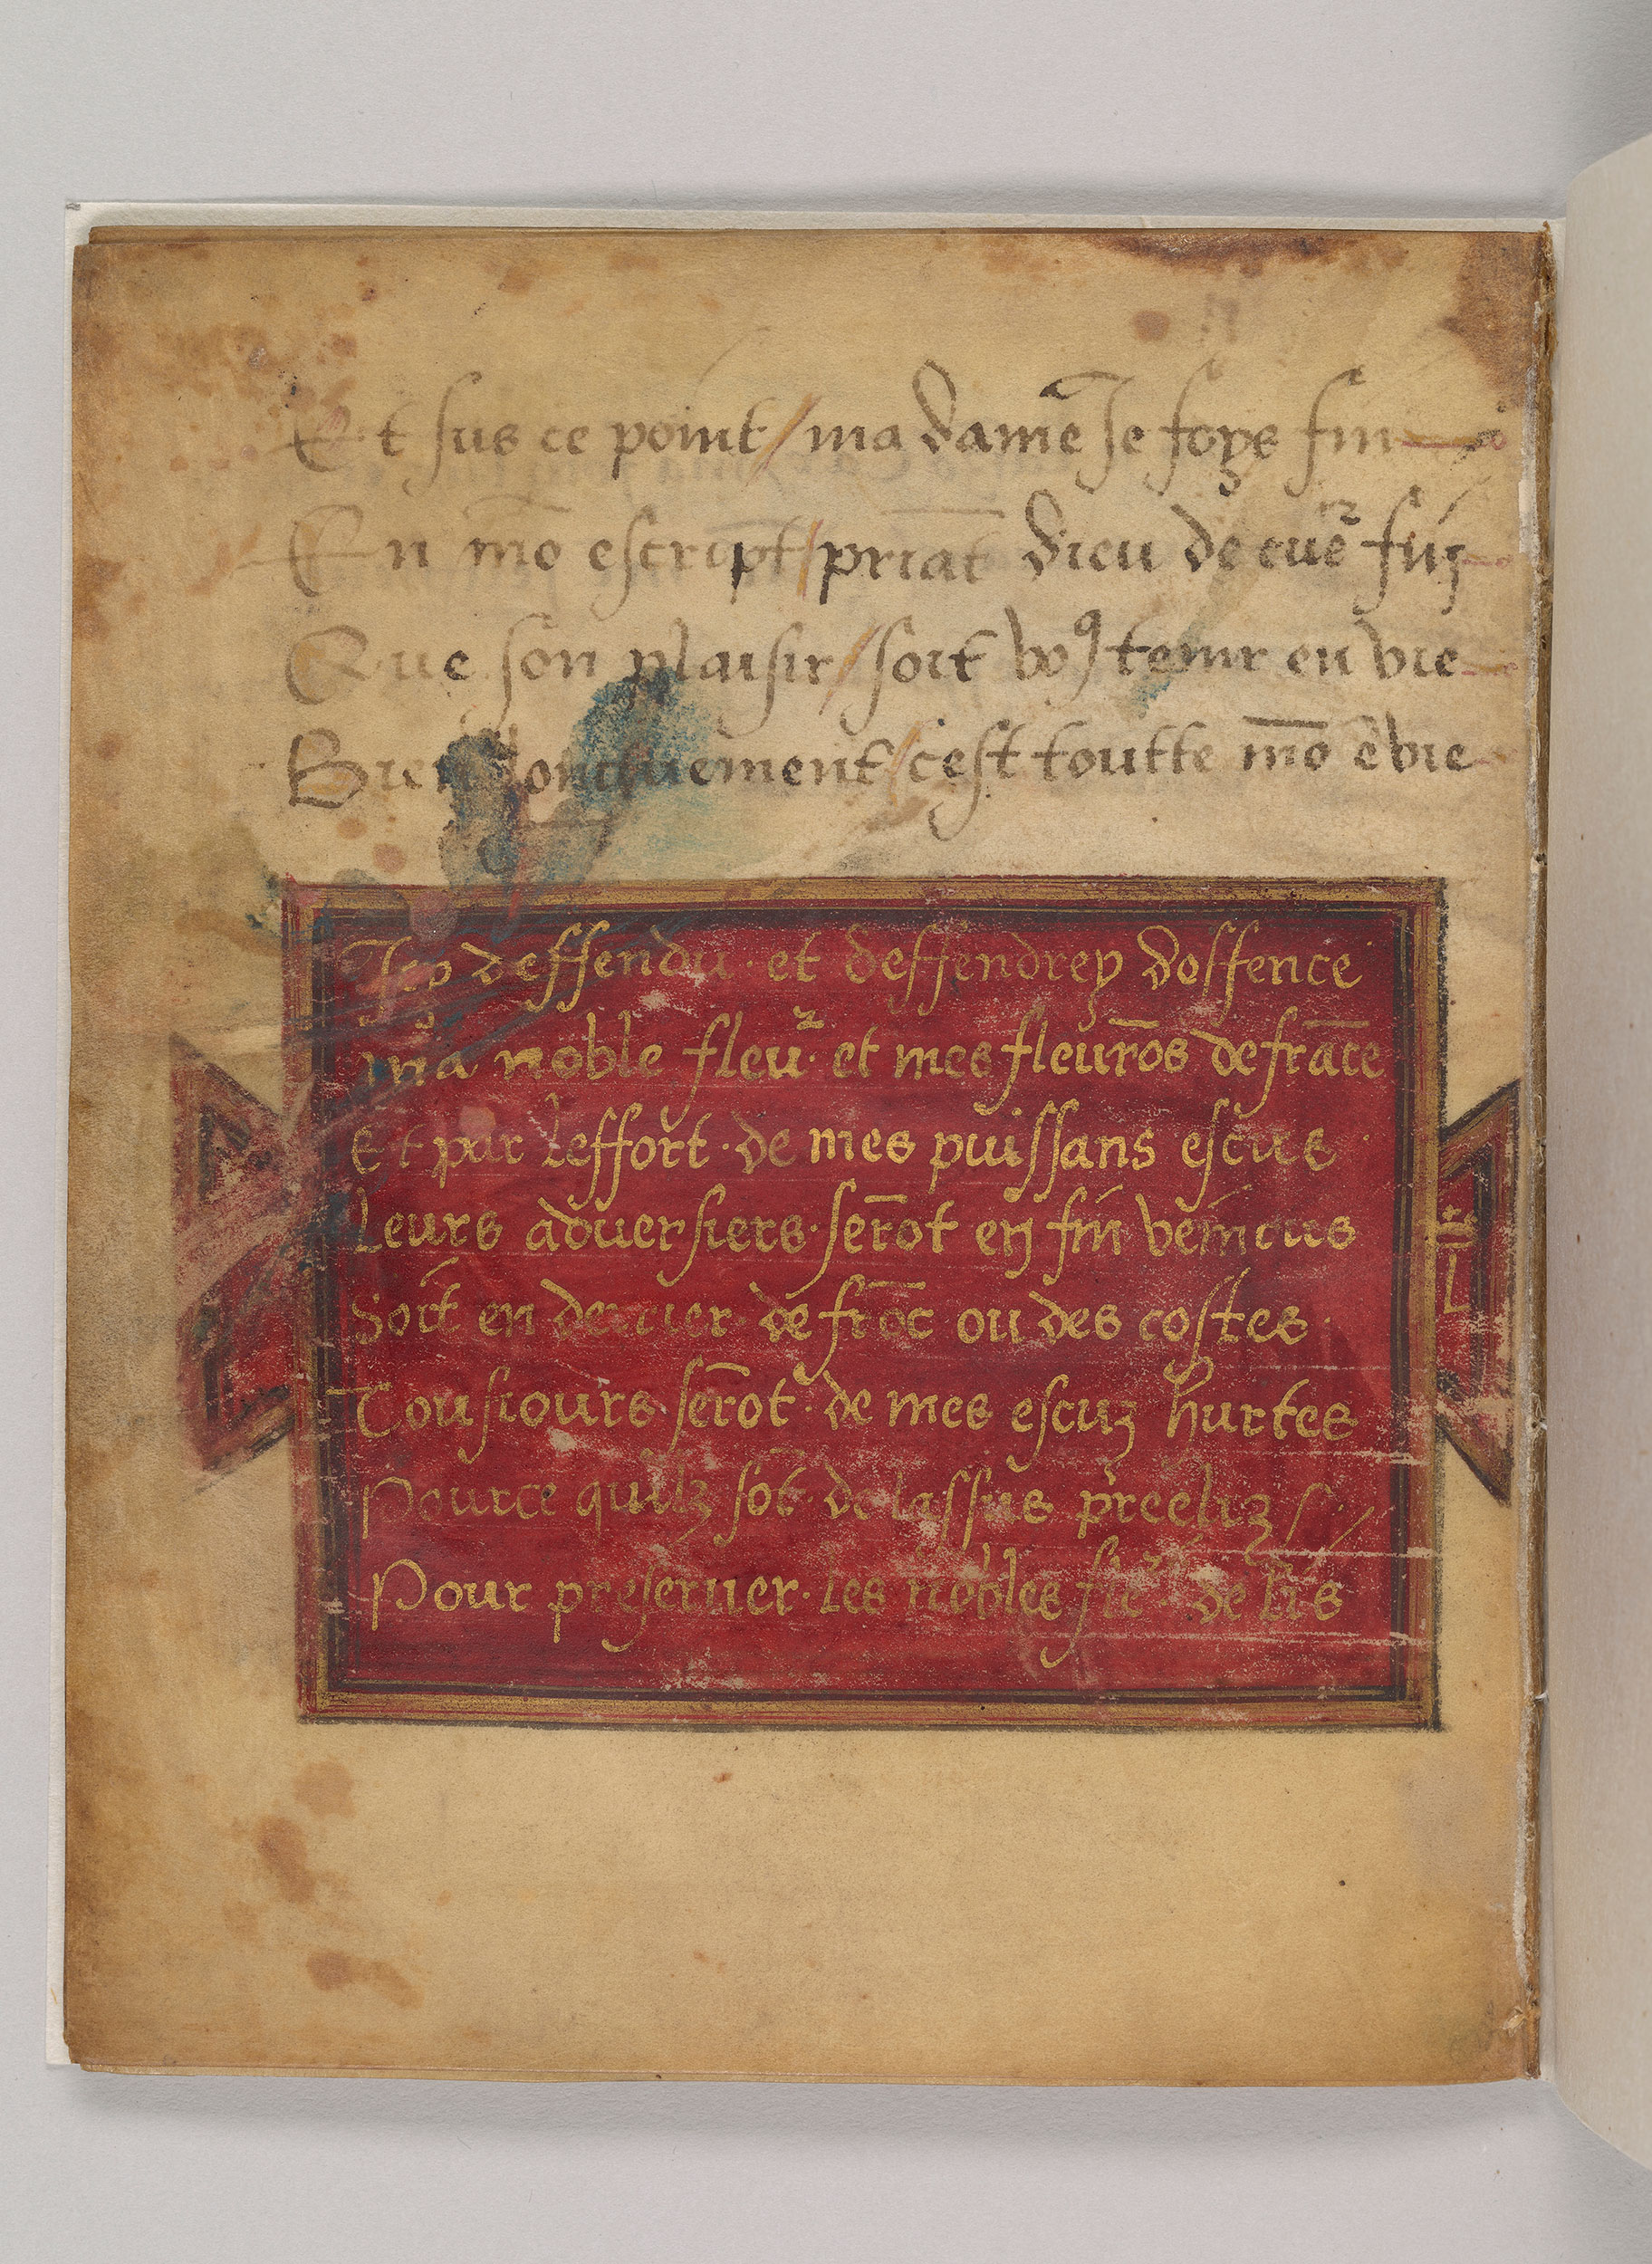 Et sus ce point / ma dame Je foys fin
En mō escript / priāt dieu de cuēr fin
Que son plaisir / soit voꝰ tenir en vie
Bien longuement / cest toutte mō ēvie
Jey deffendu · et deffendrey doffence
ma noble fleur · et mes fleurōs de frāce
Et par Leffort · de mes puissans escus
Leurs aduersiers · serōt en fin veincus
Soit en derrier · de frōt ou des costes
Tousiours serōt · de mes escuz hurtes
Pource quilz sōt · de lassus preeliz
Pour preseruer · Les nobles fleurs de lis